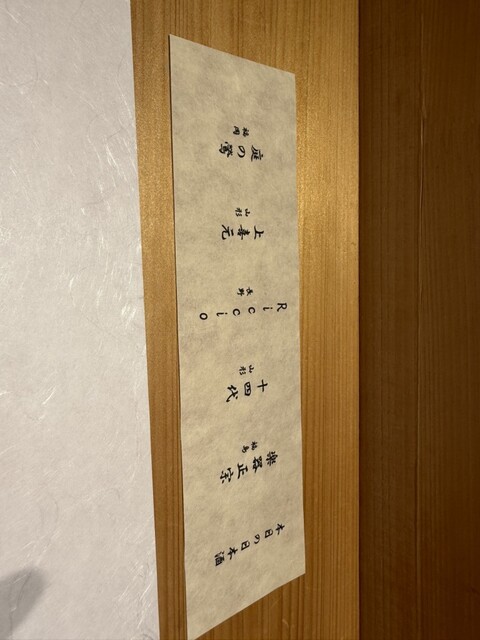 本日の日本酒
楽器正宗
福島
十四代
山形
Riccio
長野
上喜元
山形
庭の鶯
福岡